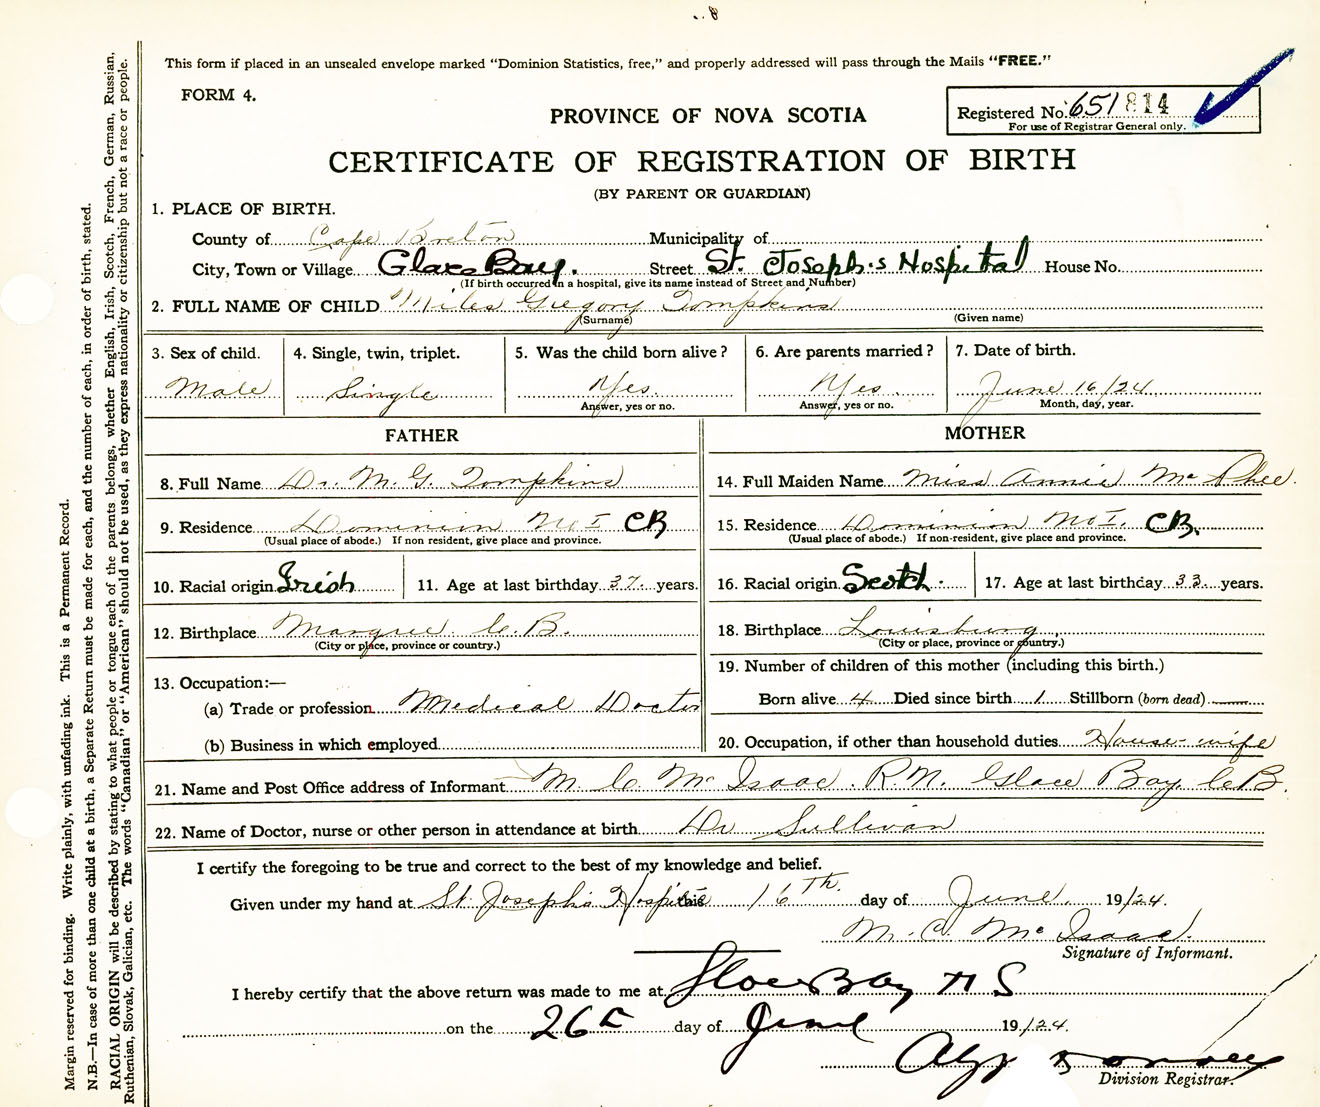 This form if placed in an unsealed envelope marked "Dominion Statistics, free," and properly addressed will pass through the Mails "FREE."
FORM 4.
PROVINCE OF NOVA SCOTIA
Registered No. 651 814
For use of Registrar General only.
CERTIFICATE OF REGISTRATION OF BIRTH
(BY PARENT OR GUARDIAN)
1. PLACE OF BIRTH.
County of Cape Breton Municipality of
City, Town or Village Glace Bay. Street St. Joseph's Hospital House No.
(If birth occurred in a hospital, give its name instead of Street and Number)
2. FULL NAME OF CHILD Miles Gregory Tompkins
(Surname) (Given name)
3. Sex of child. 4. Single, twin, triplet. 5. Was the child born alive? 6. Are parents married? 7. Date of birth.
Male Single Yes. Yes. June 16/24
Answer, yes or no. Answer, yes or no. Month, day, year.
FATHER MOTHER
8. Full Name Dr. M. G. Tompkins 14. Full Maiden Name Miss Annie McPhee.
9. Residence Dominion No I CB 15. Residence Dominion No I. CB.
(Usual place of abode.) If non resident, give place and province. (Usual place of abode.) If non-resident, give place and province.
10. Racial origin Irish 11. Age at last birthday 37 years. 16. Racial origin Scotch. 17. Age at last birthday 33 years.
12. Birthplace Margree C. B. 18. Birthplace Louisburg,
(City or place, province or country.) (City or place, province or country.)
13. Occupation:— 19. Number of children of this mother (including this birth.)
(a) Trade or profession Medical Doctor Born alive 4 Died since birth 1 Stillborn (born dead) —
(b) Business in which employed 20. Occupation, if other than household duties House-wife
21. Name and Post Office address of Informant M. C. McIsaac. R.N. Glace Bay, C.B.
22. Name of Doctor, nurse or other person in attendance at birth Dr Sullivan
I certify the foregoing to be true and correct to the best of my knowledge and belief.
Given under my hand at St. Joseph's Hospital this 16th. day of June. 19/24.
M. C. McIsaac.
Signature of Informant.
I hereby certify that the above return was made to me at Glace Bay N S
on the 26 day of June 19/24.
Division Registrar.
Margin reserved for binding. Write plainly, with unfading ink. This is a Permanent Record.
N.B.—In case of more than one child at a birth, a Separate Return must be made for each, and the number of each, in order of birth, stated.
RACIAL ORIGIN will be described by stating to what people or tongue each of the parents belongs, whether English, Irish, Scotch, French, German, Russian,
Ruthenian, Slovak, Galician, etc. The words "Canadian" or "American" should not be used, as they express nationality or citizenship but not a race or people.